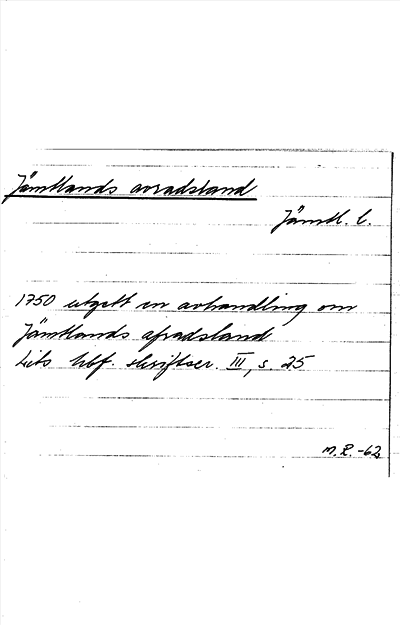 Jämtlands avradsland
Jämtl. l.
1750 utgett en avhandling om
Jämtlands afradsland
Lits hbf. skriftser. III, s. 25
M.R. -62